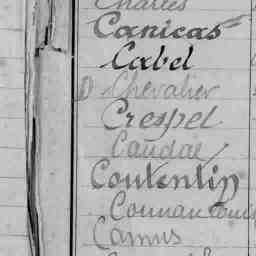 Charles
Canicas
Cabel
D Chevalier
Crespel
Caudal
Coutentin
Camus